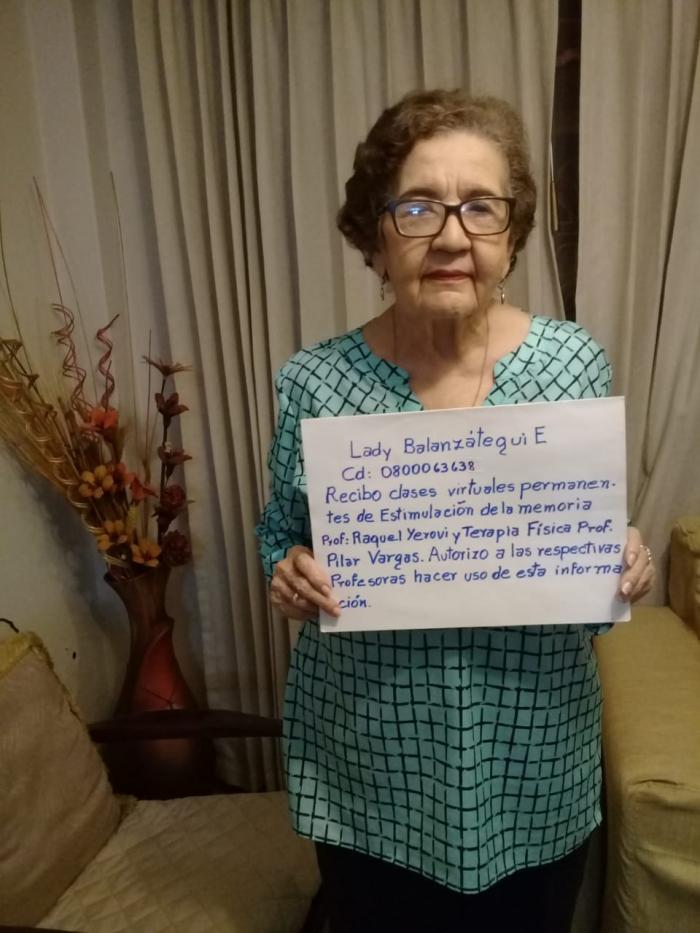 Lady Balanzátegui E
Cd: 0800063638
Recibo clases virtuales permanen-
tes de Estimulación de la memoria
Prof: Raquel Yerovi y Terapia Física Prof.
Pilar Vargas. Autorizo a las respectivas
Profesoras hacer uso de esta informa
ción.